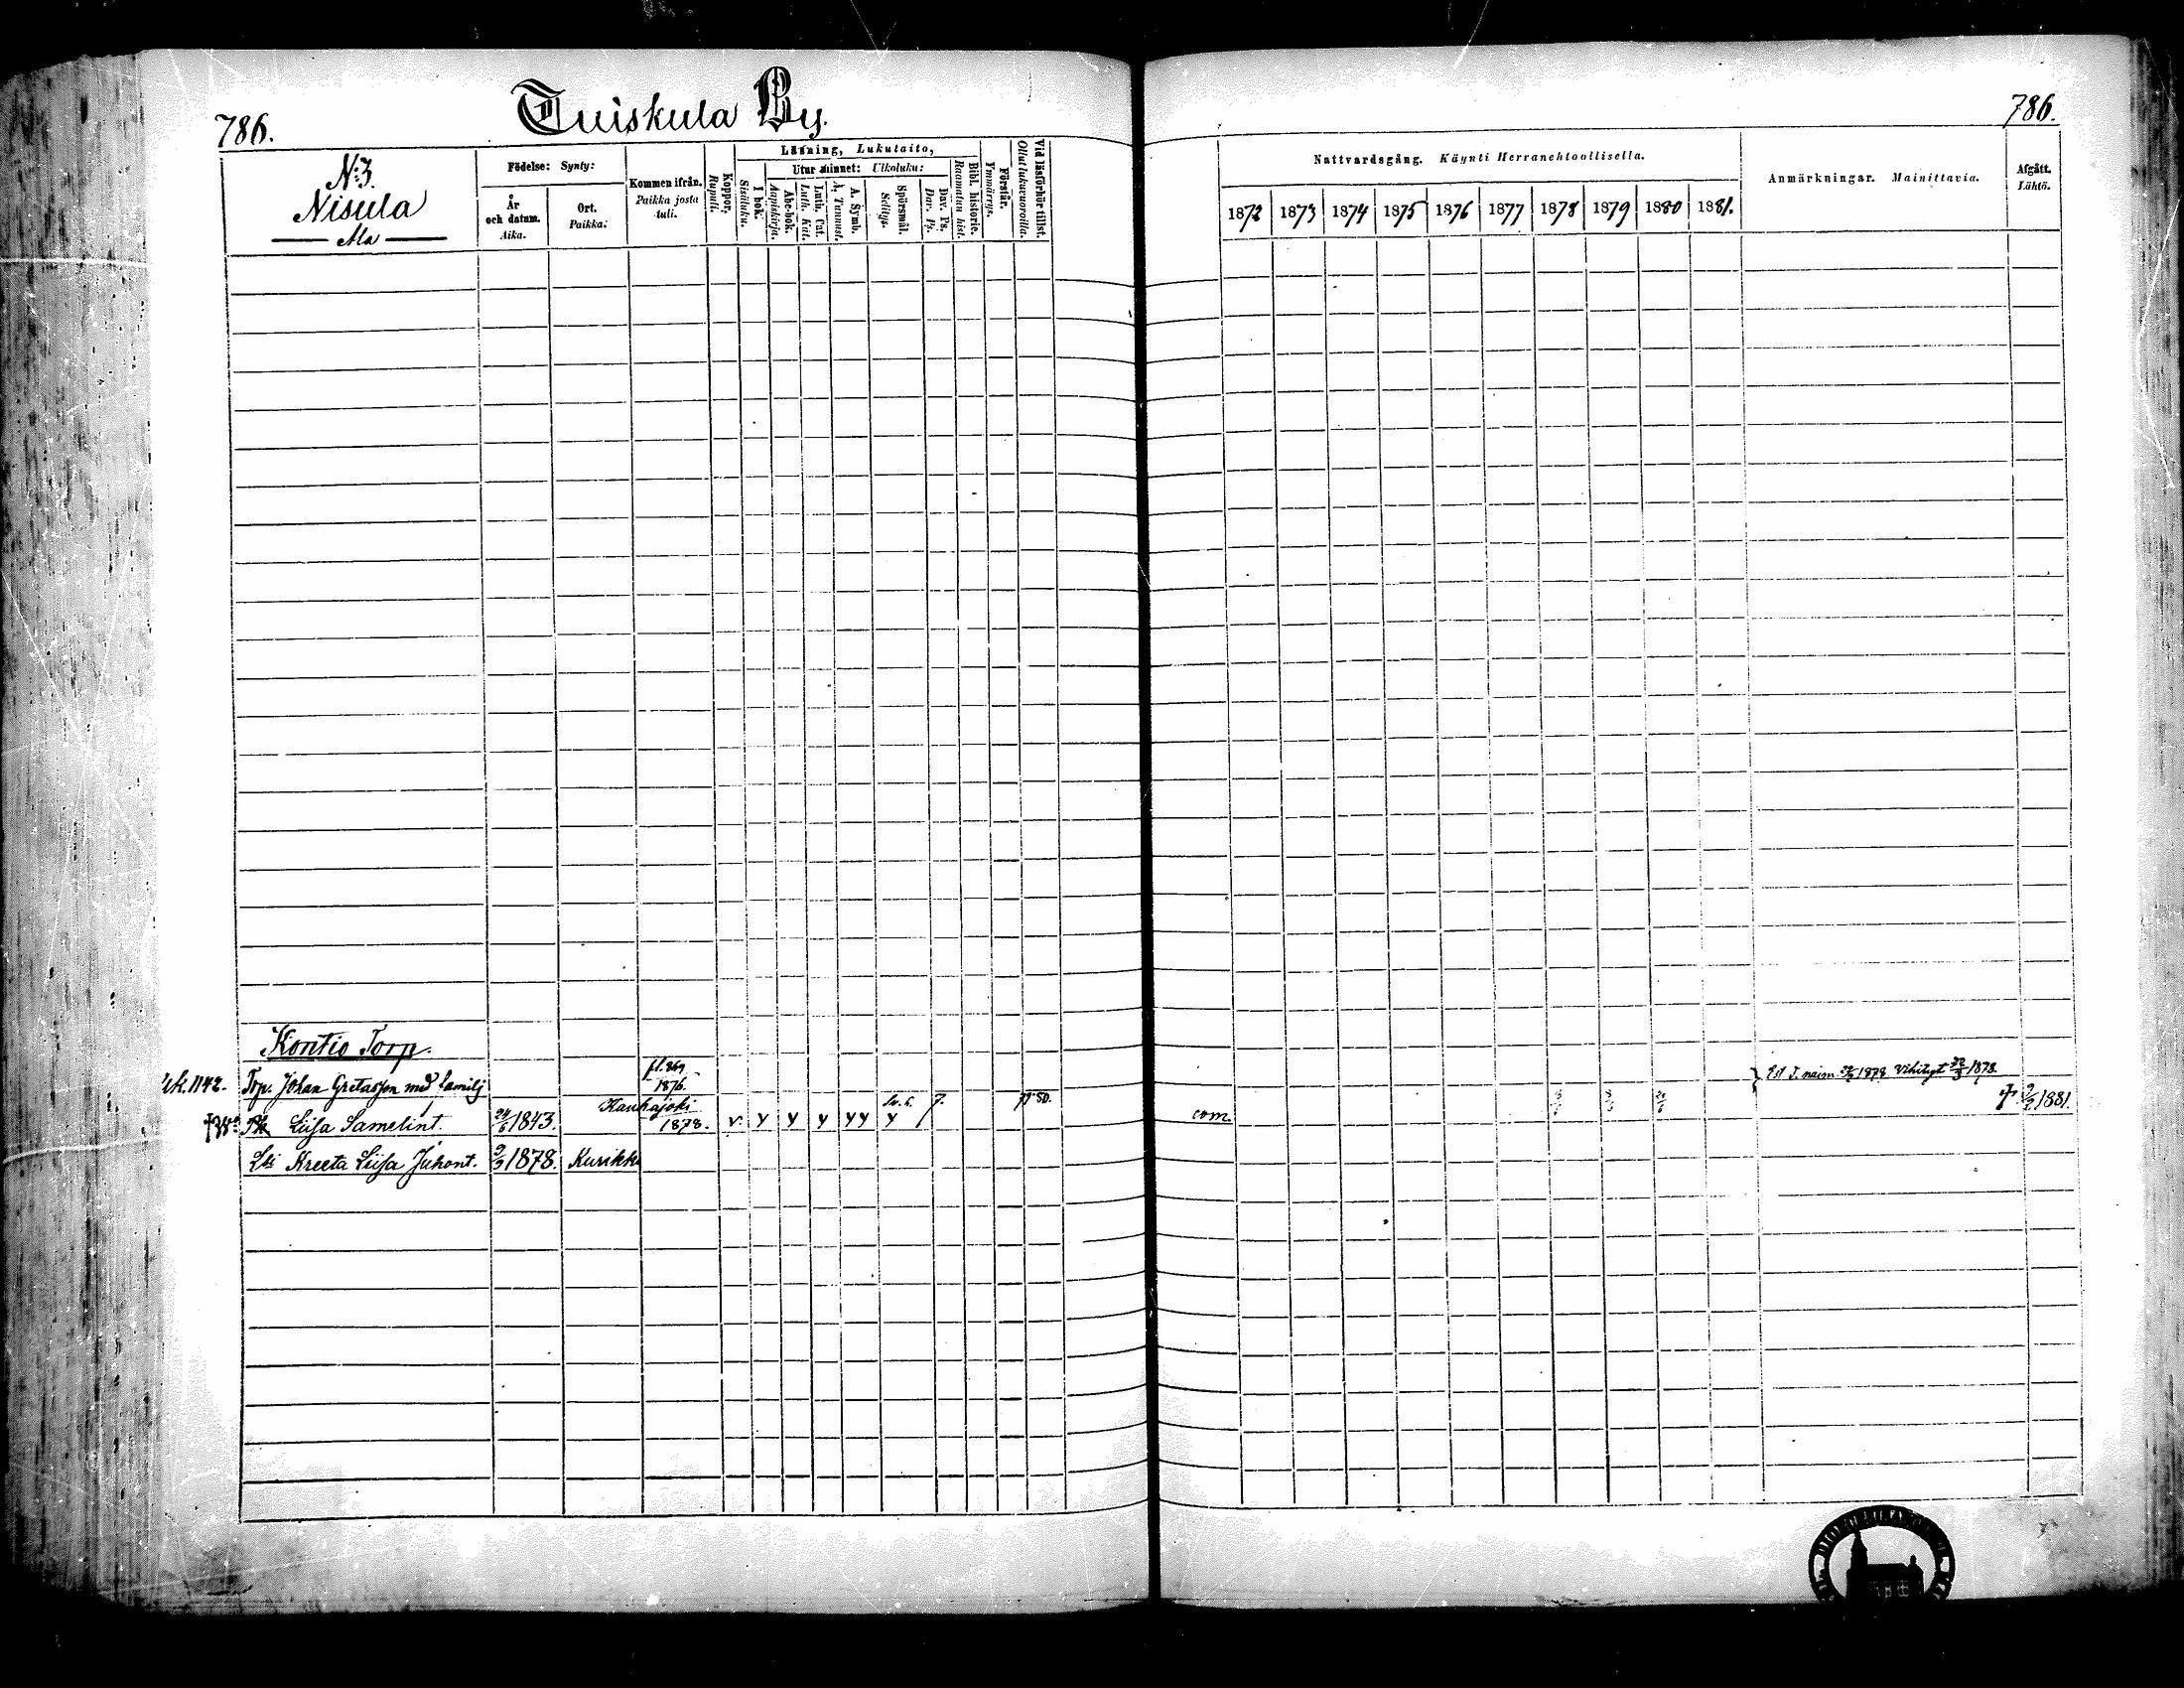 786.
Tuiskula By.
786.
N:3.
Nisula
Ala
Födelse: Synty:
År och datum. Aika.
Ort. Paikka.
Kommen ifrån. Paikka josta tuli.
Koppor. Rupuli.
Läsning, Lukutaito,
I bok. Sisäluku.
Utur minnet: Ulkoluku:
Abc-bok. Aapiskirja.
Luth. Cat. Luth. Kat.
A. Symb. A. Tunnust.
Spörsmål. Selitys.
Dav. Ps. Dav. Ps.
Bibl. historie. Raamatun hist.
Förstår. Ymmärrys.
Vid läsförhör tillst. Ollut lukuvuoroilla.
Nattvardsgång. Käynti Herranehtoollisella.
1872 1873 1874 1875 1876 1877 1878 1879 1880 1881.
Anmärkningar. Mainittavia.
Afgått. Lähtö.
Kontio Torp.
1142. Torp. Johan Gretasson med familj fl. 1876. 1878 Vihityt 1878.
Liisa Samelint. 1843. Kauhajoki 1878. v. y y y yy y 7. com. † 1881.
Kreeta Liisa Juhont. 1878. Kurikka